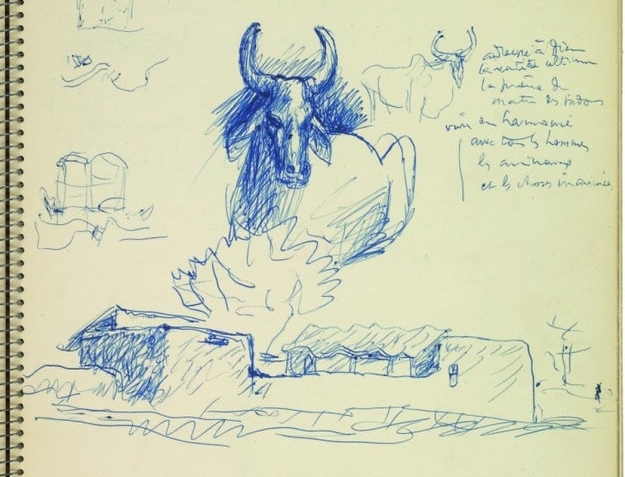 à Dieu
la vérité ultime
la prière du
matin des indous
vivre en harmonie
avec tous les hommes
les animaux
et les choses inanimées